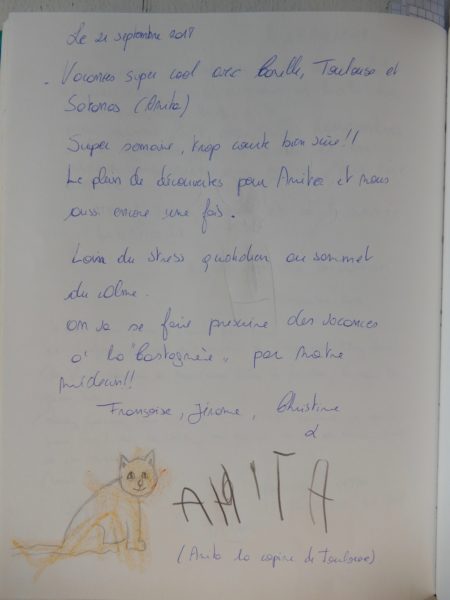 Le 21 septembre 2017
- Vacances super cool avec Toulouse et
Satanas (Amita)
Super semaine, trop courte bien sûre!!
Le plein de découvertes pour Amita et nous
aussi encore une fois.
Loin du stress quotidien au sommet
du calme.
on va se faire prescrire des vacances
à la "Castagnère" par notre
médecin!!
Françoise, Jérôme, Christine
&
AMITA
(Amita la copine de Toulouse)